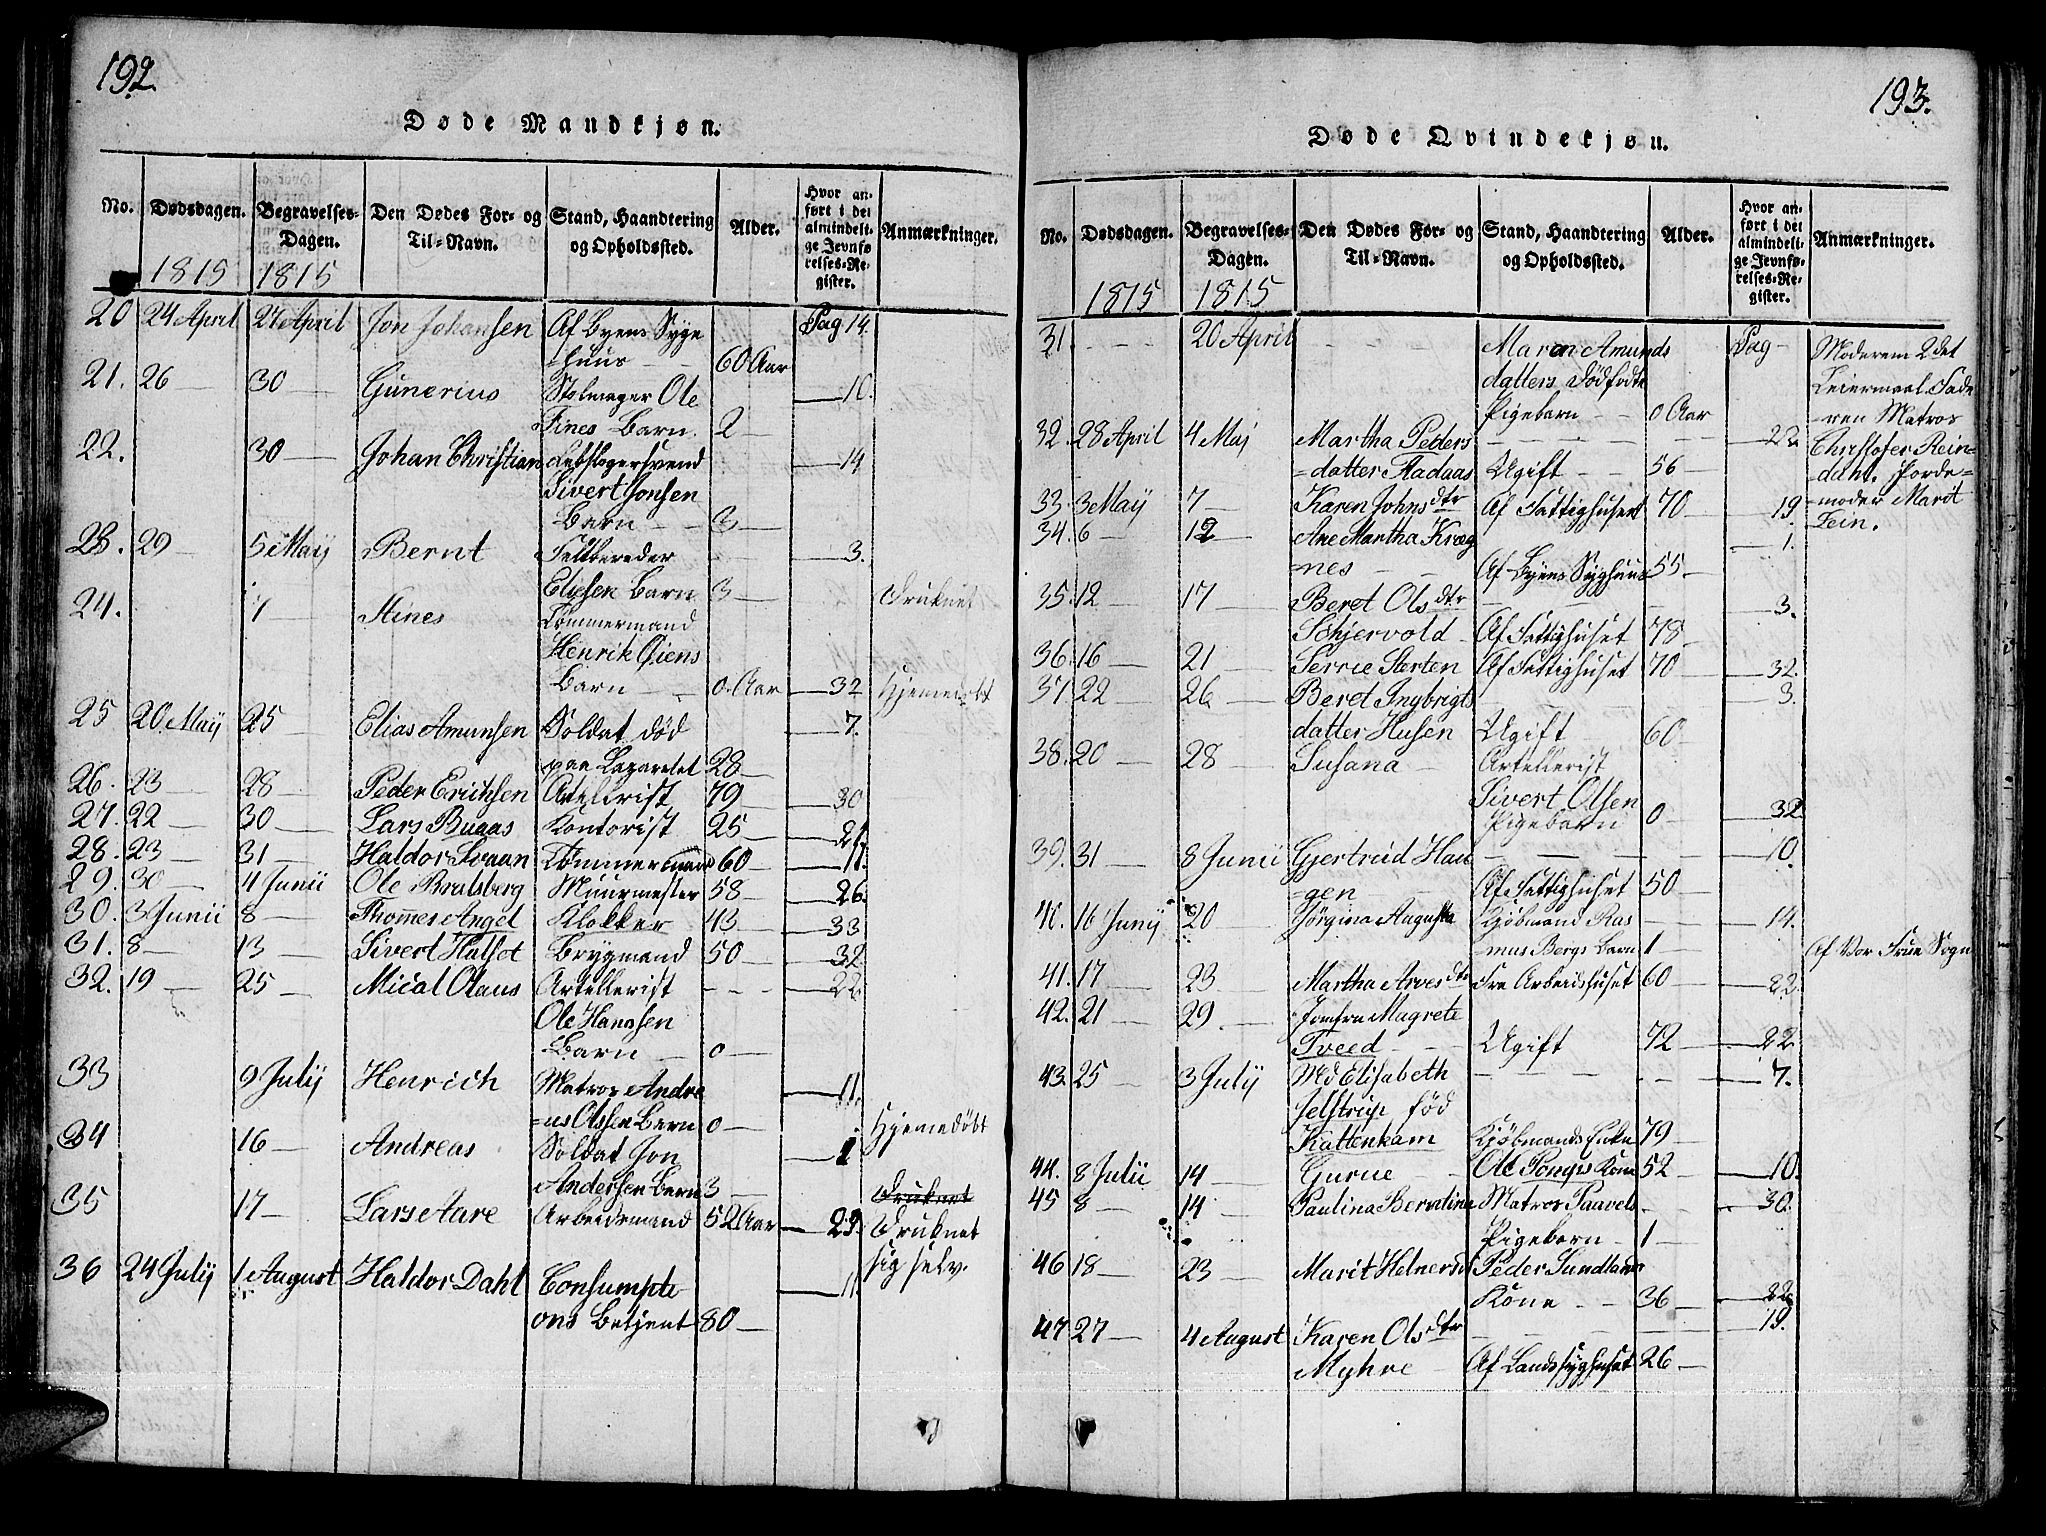 192.
Døde Mandkjøn.
No. Dødsdagen. Begravelses-Dagen. Den Dødes For- og Til-Navn. Stand, Haandtering og Opholdssted. Alder. Hvor anført i det almindelige Jevnførelses-Register. Anmærkninger.
1815 1815
20 24 April 27 April Jon Johansen Af Byens Syge Pag 14.
huus - - 60 Aar
21. 26 — 30 — Gunerius Stolmager Ole — 10.
Fines Barn. 2 —
22. 30 — Johan Christian svend — 14
Sivert Jonsen
Barn - - 3 —
23. 29 — 5 Maij Bernt Feltbereder — 3.
Eliesen Barn 3 — Druknet
24. 7 — Stines Tømmermand
Henrik Øiens
Barn - - 0. Aar — 32 Hjemedøbt
25 20. Maij 25 — Elias Amunsen Soldat død — 7.
paa Lazarettet 28 —
26. 23 — 28 — Peder Erichsen Artelerist 79 — 30
27. 22 — 30 — Lars Buaas Kontorist 25 — 21.
28. 23 — 31 — Haldor Svaan Tømmermand 60 — 11.
29. 30 — 4 Junii Ole Bratsberg Muurmester 58 — 26.
30. 3 Junii 8 — Thommes Angel Klokker 43 — 33
31. 8 — 13 — Sivert Halset Brygmand 50 — 32
32. 19 — 25 — Mical Olaus Artellerist - - - 22
Ole Hanssen
Barn — 0 —
33 9 Julij Henrich Matros Andre — 11.
=us Olssen Bern 0 — Hjemedøbt
34 16 — Andreas Soldat Jon — 1
Andersen Barn 3 —
35 17 — Lars Aare Arbeidsmand 52 Aar — 23. Druknet
Druknet
sig selv.
36 24 Julij 1 August Haldor Dahl Consumpti — 11.
ons Betjent 80 —
193.
Døde Qvindekjøn.
No. Dødsdagen. Begravelses-Dagen. Den Dødes For- og Til-Navn. Stand, Haandtering og Opholdssted. Alder. Hvor anført i det almindelige Jevnførelses-Register. Anmærkninger.
1815 1815
31. - - - 20 April Maren Amunds Pag - Moderem 2det
datters Dødfødte Leiermaal Fade
Pigebarn - - 0 Aar ren Matros
32. 28 April 4 Maj Martha Peders — 22. Christofer Rein-
=datter Stadaas Ugift - - 56 — dahl. Jorde=
33. 3 Maij 7 — Karen Johnsdtr Af Fattighuset 70 — 19. =moder Marit
34. 6 — 12 — Ane Martha Kræg — 1. Fein.
nes - - Af Byens Syghuus 55 —
35. 12 — 17 — Beret Olsdtr — 3.
Schjervold - Af Fattighuset 78 —
36. 16 — 21 — Serrie Sterten Af Fattighuset 70 — 32.
37. 22 — 26 — Beret Ingbrigts — 3.
datter Husen Ugift - 60 —
38. 20 — 28 — Susana - Artellerist
Sivert Olsen
Pigebarn 0 — 32
39. 31 — 8 Junii Gjertrud Hau — 10.
=gen - Af Fattighuset 50 —
40. 16 Junij 20 — Jørgina Augusta Kjøbmand Ras — 14.
mus Bergs Barn 1 — Af Vor Frue Sogn
41. 17 — 23 — Martha Arvesdtr Fra Arbeidshuset 60 — 22.
42. 21 — 29 — Jomfru Magrete
Tveed - - Ugift 72 — 22.
43. 25 — 3 Julij Md Elisabeth — 7.
Jelstrup fød
Kattenkam Kjøbmands Enke 79 —
44. 8 Julii 14 — Gurue - Ole Kone 52 — 10.
45 8 — 14 — Paulina Berntine Matros Paavels — 30.
Pigebarn - 1 —
46 18 — 23 — Marit Helnersd Peder Sundland
Kone - - 36 — 22
47 27 — 4 August Karen Olsdtr — 19.
Myhre - Af Landssyghuset 26 —